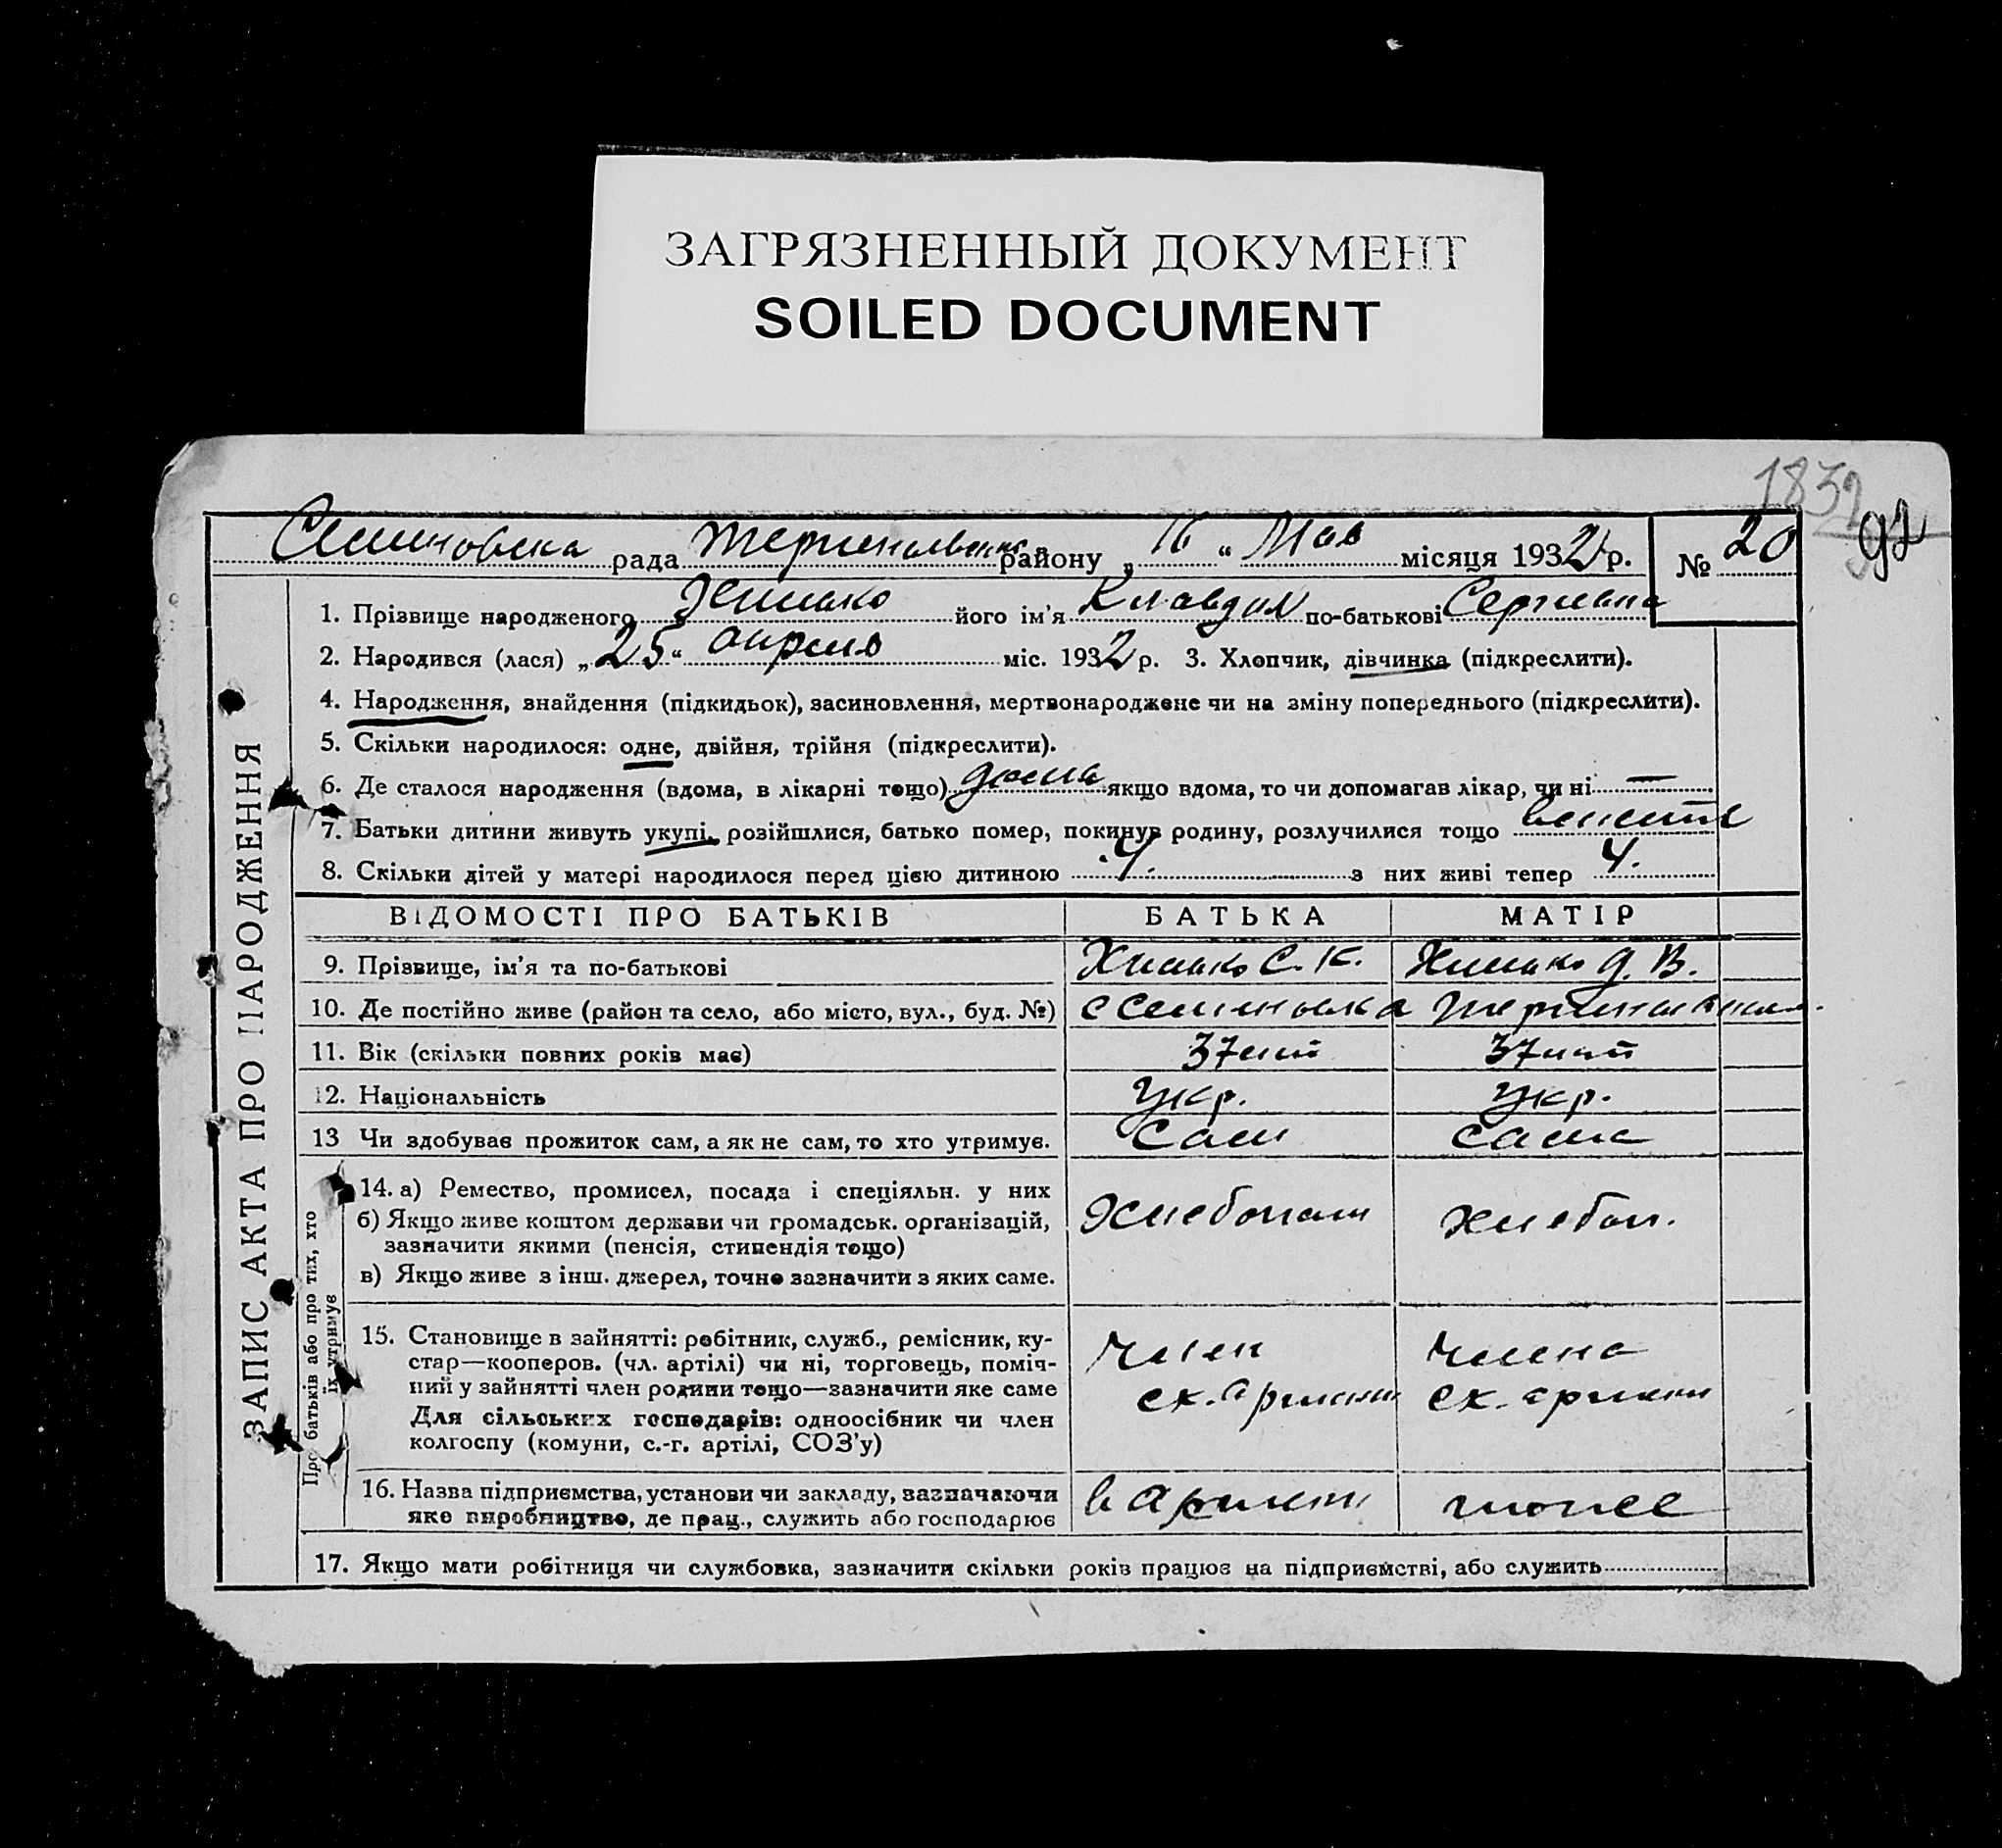 ЗАГРЯЗНЕННЫЙ ДОКУМЕНТ
SOILED DOCUMENT
92
рада району „16“ Мая місяця 1932 р. № 20
1. Прізвище народженого його ім'я Клавдия по-батькові
2. Народився (лася) „25“ апреля міс. 1932 р. 3. Хлопчик, дівчинка (підкреслити).
4. Народження, знайдення (підкидьок), засиновлення, мертвонароджене чи на зміну попереднього (підкреслити).
5. Скільки народилося: одне, двійня, трійня (підкреслити).
6. Де сталося народження (вдома, в лікарні тощо) дома якщо вдома, то чи допомагав лікар, чи ні —
7. Батьки дитини живуть укупі, розійшлися, батько помер, покинув родину, розлучилися тощо вместе
8. Скільки дітей у матері народилося перед цією дитиною 4. з них живі тепер 4.
ЗАПИС АКТА ПРО НАРОДЖЕННЯ
ВІДОМОСТІ ПРО БАТЬКІВ БАТЬКА МАТІР
9. Прізвище, ім'я та по-батькові С. К. Д. В.
10. Де постійно живе (район та село, або місто, вул., буд. №) с
11. Вік (скільки повних років має) 37 лет 37 лет
12. Національність Укр. Укр.
13 Чи здобуває прожиток сам, а як не сам, то хто утримує. Сам сама
Про батьків або про тих, хто їх утримує
14. а) Ремество, промисел, посада і спеціяльн. у них
б) Якщо живе коштом держави чи громадськ. організацій,
зазначити якими (пенсія, стипендія тощо)
в) Якщо живе з інш. джерел, точно зазначити з яких саме.
Хлебопаш хлебоп.
15. Становище в зайнятті: робітник, служб., ремісник, ку-
стар—кооперов. (чл. артілі) чи ні, торговець, поміч-
ний у зайнятті член родини тощо—зазначити яке саме
Для сільських господарів: одноосібник чи член
колгоспу (комуни, с.-г. артілі, СОЗ'у)
член члена
сх. артели сх. артели
16. Назва підприємства, установи чи закладу, зазначаючи
яке виробництво, де прац., служить або господарює
в артели тоже
17. Якщо мати робітниця чи службовка, зазначити скільки років працює на підприємстві, або служить